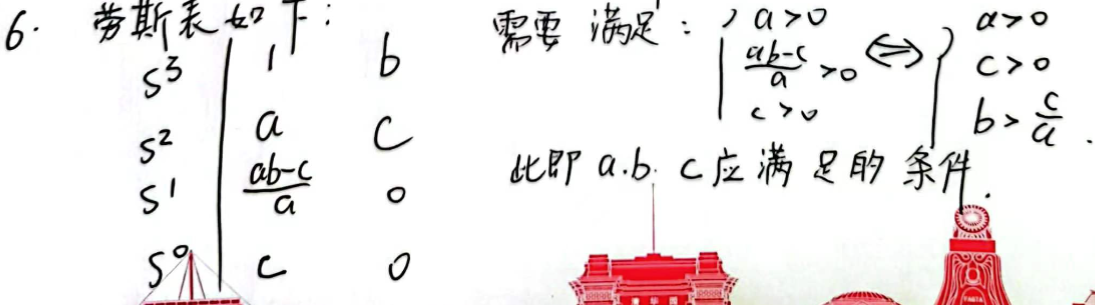 6. 劳斯表如下:
s³ 1 b
s² a c
s¹ (ab-c)/a 0
s⁰ c 0
需要满足: { a>0 (ab-c)/a >0 c>0 ⇔ { a>0 c>0 b> c/a .
此即 a.b. c 应满足的条件.